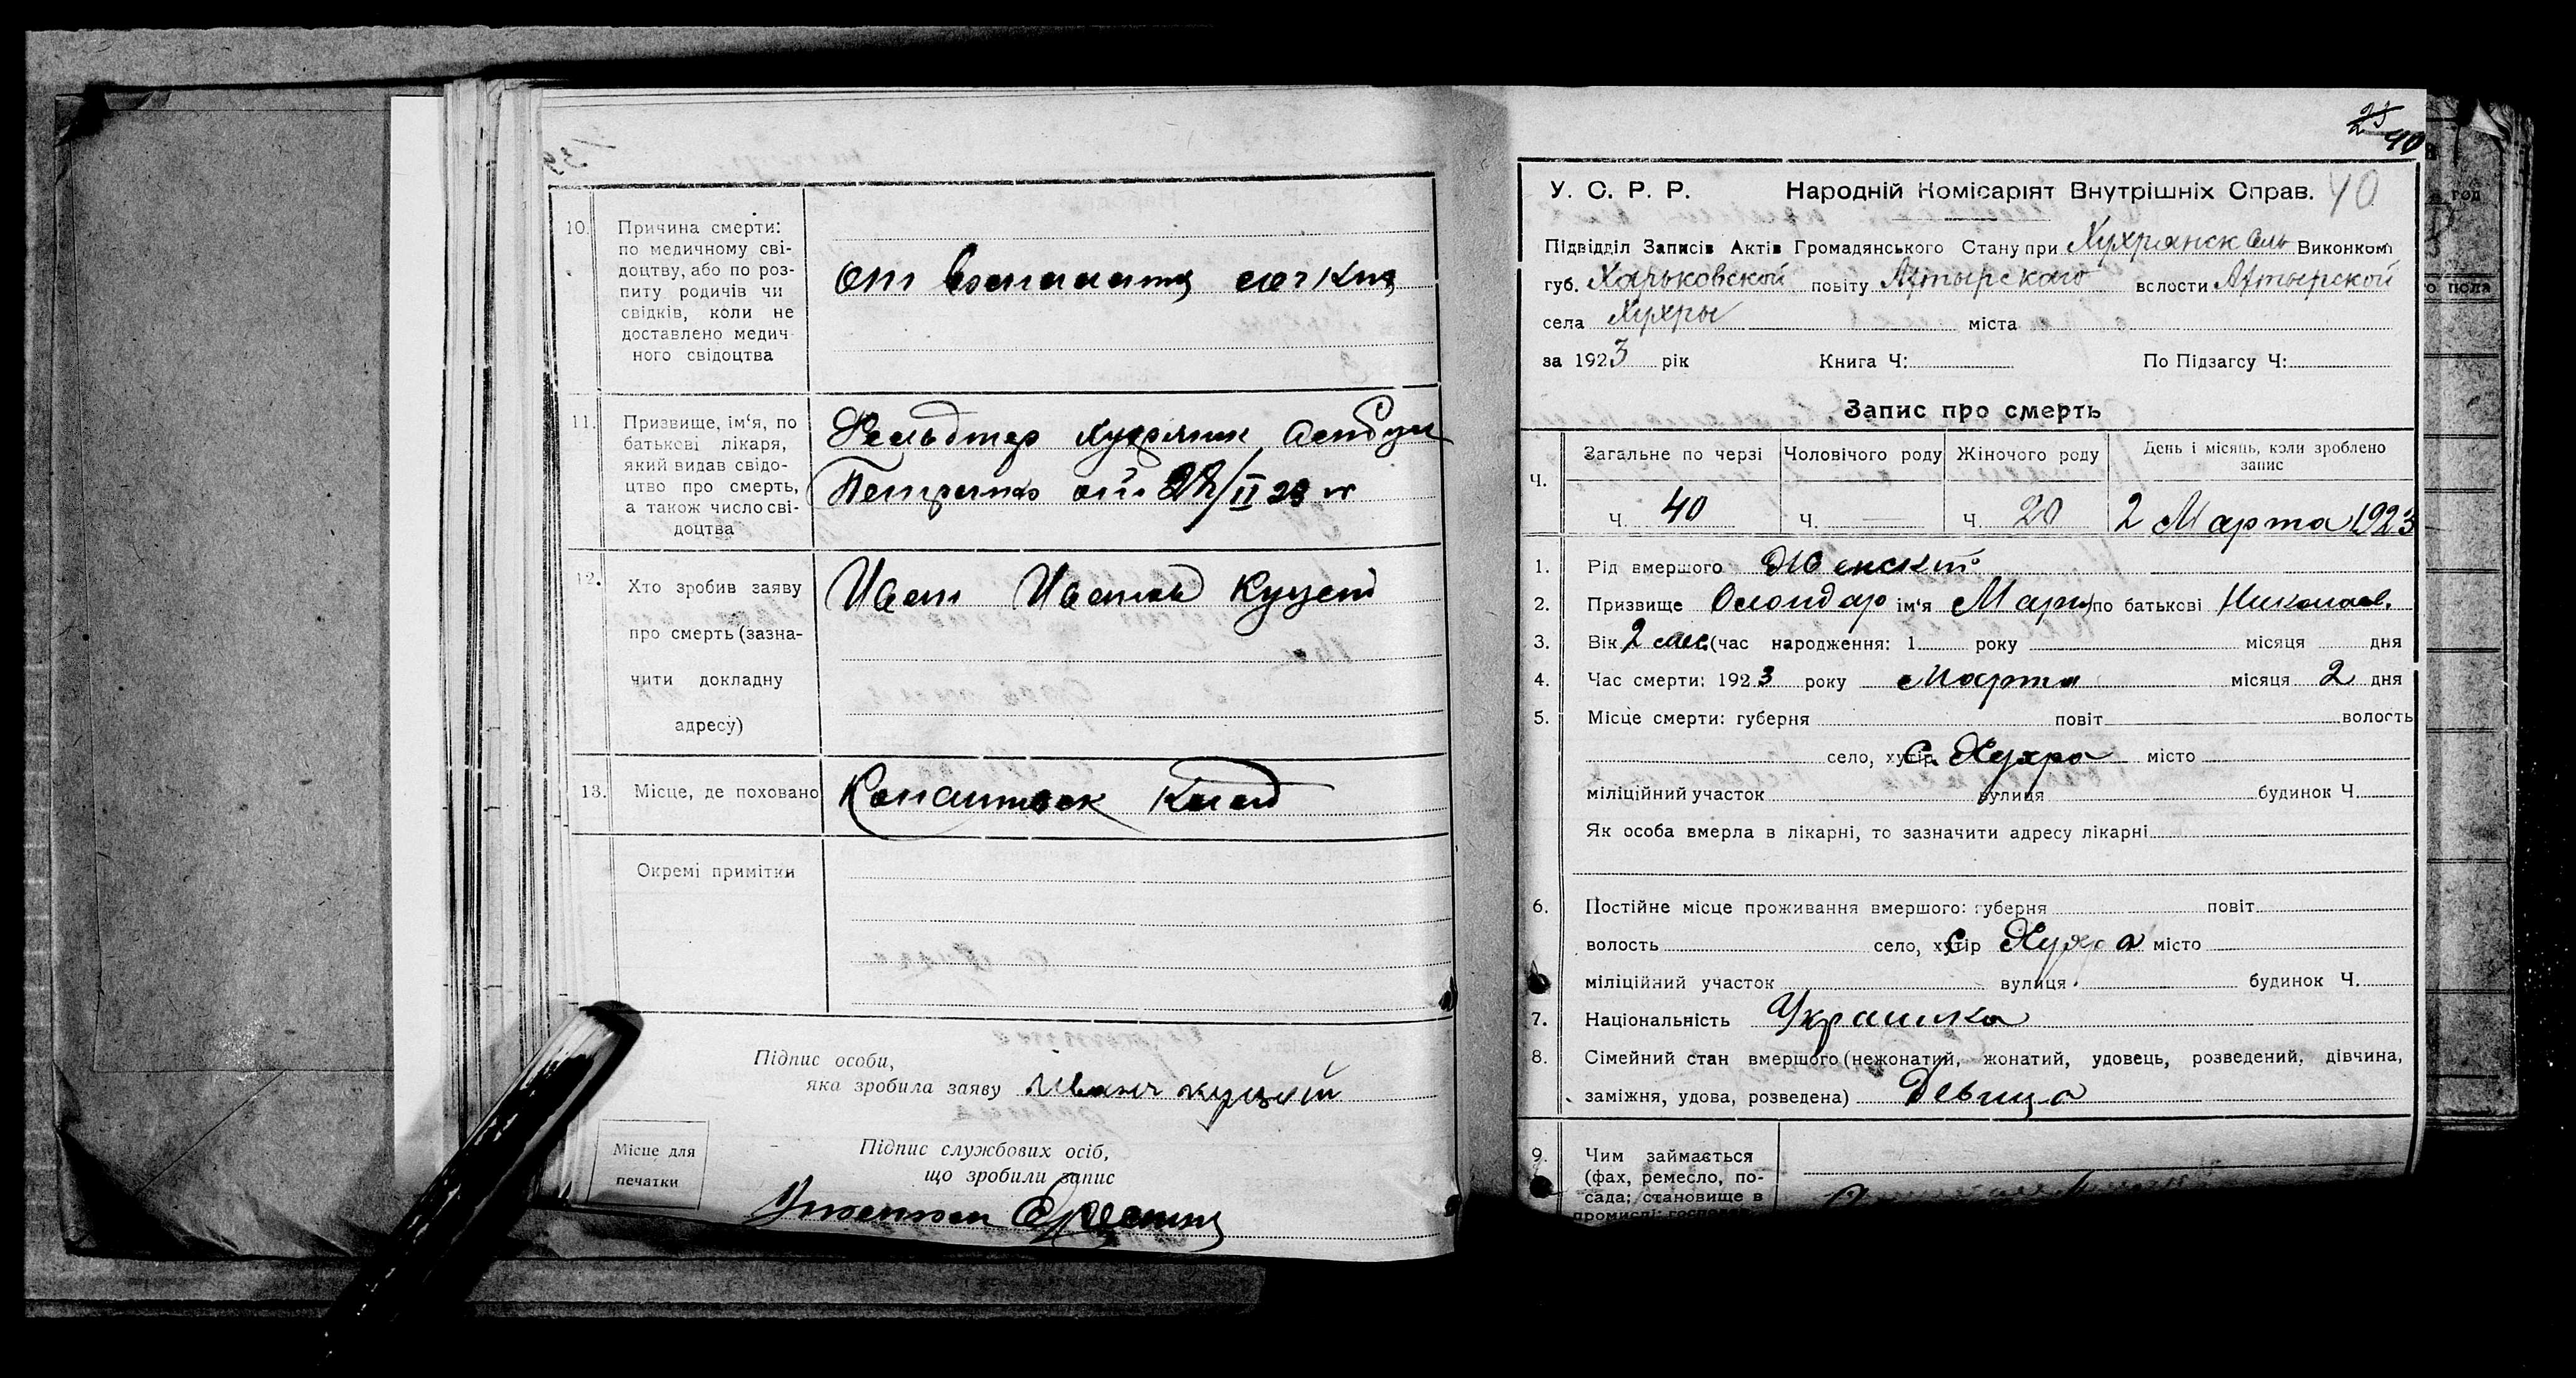 10. Причина смерти:
по медичному сві-
доцтву, або по роз-
питу родичів чи
свідків, коли не
доставлено медич-
ного свідоцтва
от
11. Призвище, ім'я, по
батькові лікаря,
який видав свідо-
цтво про смерть,
а також число сві-
доцтва
Фельдшер
от /II 23 г
12. Хто зробив заяву
про смерть (зазна-
чити докладну
адресу)
Иван Иванов Куцей
13. Місце, де поховано
Окремі примітки
Підпис особи,
яка зробила заяву Иванъ куцый
Місце для
печатки
Підпис службових осіб,
що зробили запис
40
40
У. С. Р. Р. Народній Комісаріят Внутрішніх Справ.
Підвідділ Записів Актів Громадянського Стану при Хухрянск Сель Виконком
губ. Харьковской повіту Ахтырского вслости Ахтырской
села Хухры міста
за 1923 рік Книга Ч: По Підзагсу Ч:
Запис про смерть
Ч. Загальне по черзі Чоловічого роду Жіночого роду День і місяць, коли зроблено
запис
Ч. 40 Ч. — Ч. 20 2 Марта 1923
1. Рід вмершого Женский
2. Призвище ім'я Мария по батькові Николаев.
3. Вік 2 мес. (час народження: 1 року місяця дня
4. Час смерти: 1923 року Марта місяця 2 дня
5. Місце смерти: губерня повіт волость
село, хутір С. Хухра місто
міліційний участок вулиця будинок Ч.
Як особа вмерла в лікарні, то зазначити адресу лікарні
6. Постійне місце проживання вмершого: губерня повіт
волость село, хутір С Хухра місто
міліційний участок вулиця будинок Ч.
7. Національність Украинка
8. Сімейний стан вмершого (нежонатий, жонатий, удовець, розведений, дівчина,
заміжня, удова, розведена) Девица
9. Чим займається
(фах, ремесло, по-
сада; становище в
промислі: